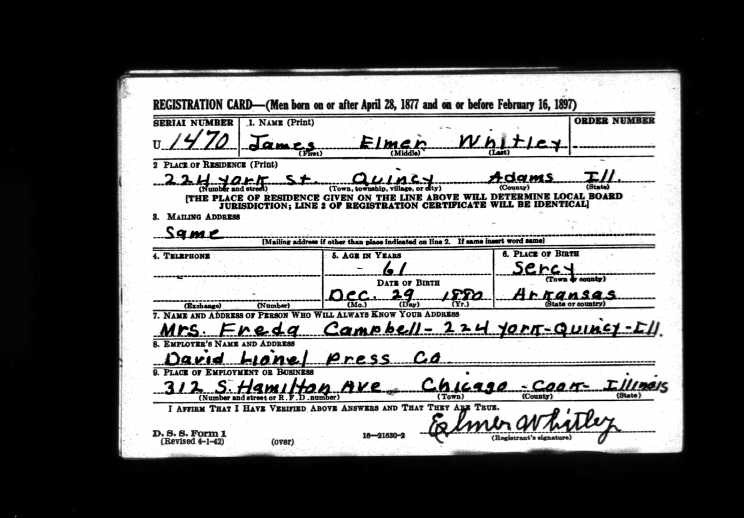 REGISTRATION CARD—(Men born on or after April 28, 1877 and on or before February 16, 1897)
SERIAL NUMBER 1. NAME (Print) ORDER NUMBER
U 1470 James Elmer Whitley
(First) (Middle) (Last)
2 PLACE OF RESIDENCE (Print)
224 York St. Quincy Adams Ill.
(Number and street) (Town, township, village, or city) (County) (State)
[THE PLACE OF RESIDENCE GIVEN ON THE LINE ABOVE WILL DETERMINE LOCAL BOARD
JURISDICTION; LINE 2 OF REGISTRATION CERTIFICATE WILL BE IDENTICAL]
3. MAILING ADDRESS
Same
[Mailing address if other than place indicated on line 2. If same insert word same]
4. TELEPHONE 5. AGE IN YEARS 6. PLACE OF BIRTH
61 Sercy
DATE OF BIRTH (Town or county)
Dec. 29 1880 Arkansas
(Exchange) (Number) (Mo.) (Day) (Yr.) (State or country)
7. NAME AND ADDRESS OF PERSON WHO WILL ALWAYS KNOW YOUR ADDRESS
Mrs. Freda Campbell - 224 York - Quincy - Ill.
8. EMPLOYER'S NAME AND ADDRESS
David Lionel Press Co
9. PLACE OF EMPLOYMENT OR BUSINESS
312 S. Hamilton Ave Chicago - Cook - Illinois
(Number and street or R. F. D. number) (Town) (County) (State)
I AFFIRM THAT I HAVE VERIFIED ABOVE ANSWERS AND THAT THEY ARE TRUE.
Elmer Whitley
D. S. S. Form 1
(Revised 4-1-42) (over) 16—21630-2 (Registrant's signature)